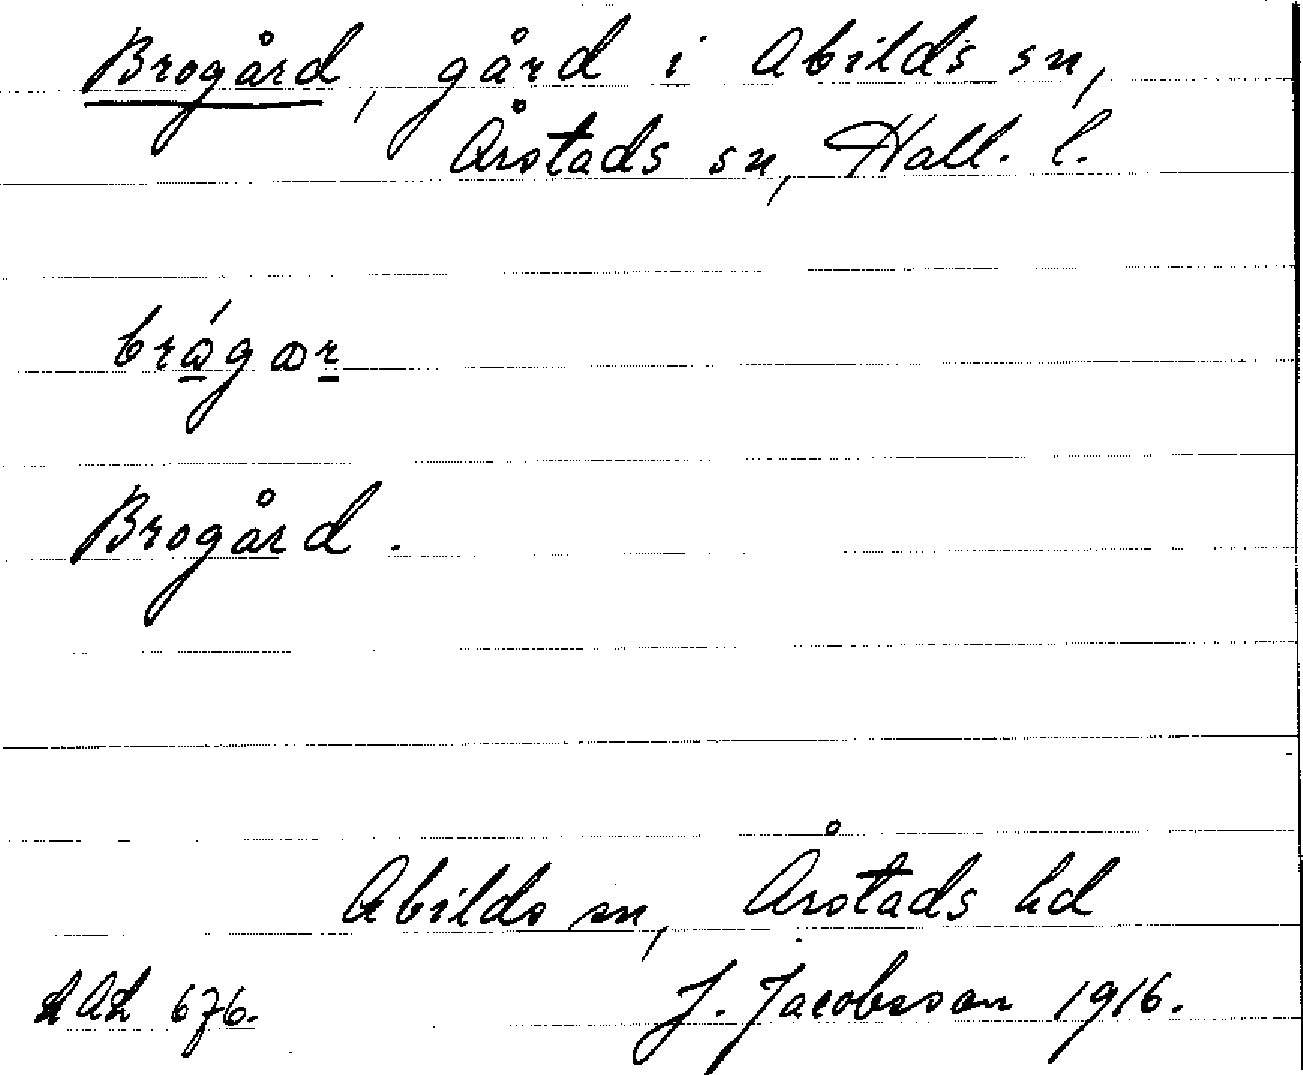 Brogård, gård i Abilds sn,
Årstads sn, Hall. l.
brǻgar
Brogård.
Abilds sn, Årstads hd
LAL 676. J. Jacobsson 1916.